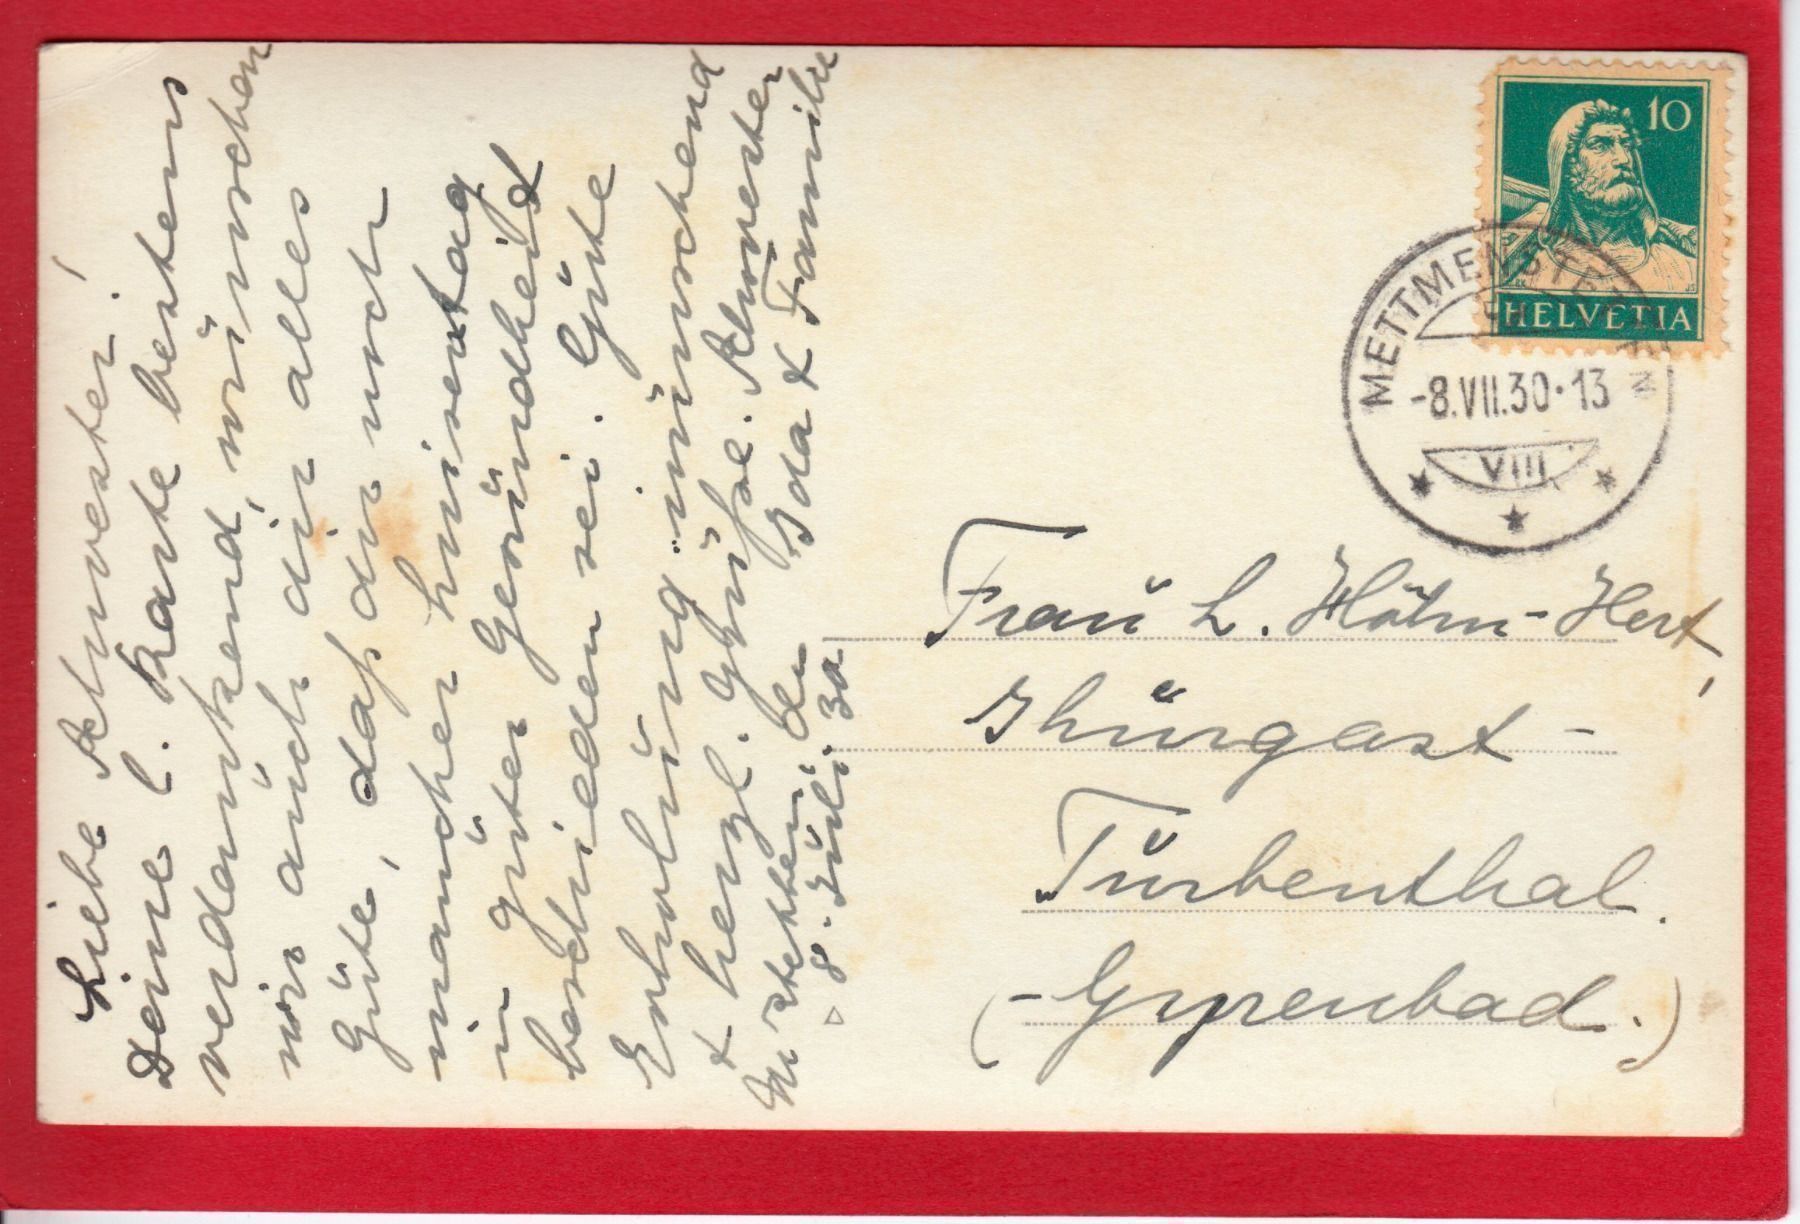 Liebe Schwester!
Deine l. Karte bestens
verdankend, wünschen
wir auch dir alles
Gute, daß dir noch
mancher
in guter Gesundheit &
beschieden sei. Gute
Erholung wünschend
& herzl. Grüße. Schwester
Ida & Familie
Mettmenstetten, den
8. Juli. 30
10
HELVETIA
METTMENSTETTEN
-8.VII.30·13
VIII
Frau L. Höhn-Hert,
Kurgast-
Turbenthal.
(-Gyrenbad.)